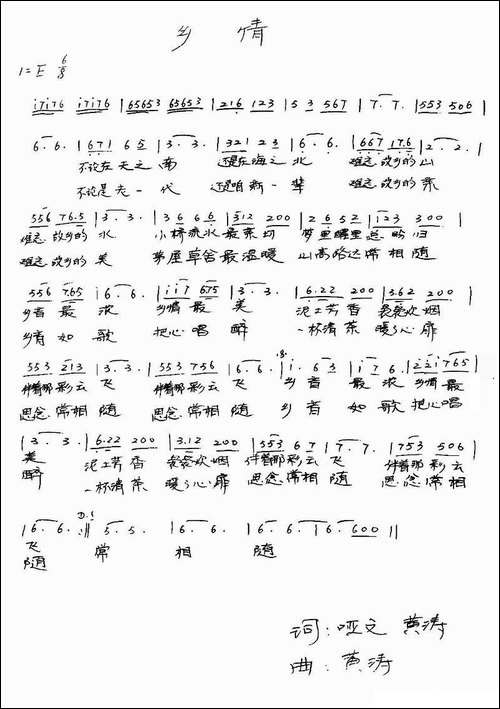 乡 情
1=E 6/8
i7i76 i7i76 | 65653 65653 | 216 123 | 5 3 567 | 7. 7. | 553 506 |
6. 6. | 671 6 5 | 3. 3. | 321 2 3 | 6. 6. | 667 17.6 | 2. 2. |
不论在天之南 还是在海之北 难忘故乡的山
不论是老一代 还是咱新一辈 难忘故乡的亲
556 76.5 | 3. 3. | 3 6 6 6 | 512 200 | 2 6 5 2 | 123 300 |
难忘 故乡的 水 小桥流水最亲切 梦里醒里总盼归
难忘 故乡的 美 茅屋草舍最温暖 山高路远常相随
556 7.65 | 6. 6. | ii7 675 | 3. 3. | 6.22 200 | 3.62 200 |
乡音 最 浓 乡情 最 美 泥土芳香 袅袅炊烟
乡音 如 歌 把心 唱 醉 一杯清茶 暖了心扉
553 213 | 3. 3. | 553 756 | 6. 6. | i. 6. | i 7 6 | 22i 765 |
伴着那彩云 飞 伴着那彩云 飞 乡 音 最 浓 乡情 最
思念 常相 随 思念 常相 随 乡 音 如 歌 把心 唱
| 3. 3. | 6.22 200 | 3.12 200 | 553 6 7 | 7. 7. | 753 506 |
美 泥土芳香 袅袅炊烟 伴着那彩云 飞 伴着那彩云
醉 一杯清茶 暖了心扉 思念 常相 随 思念 常相
| 6. 6. :|| 5. 5. | 6. 6. | 6. 6. | 6. 600 ||
飞 常 相 随
随
词：哑文 黄涛
曲：黄涛